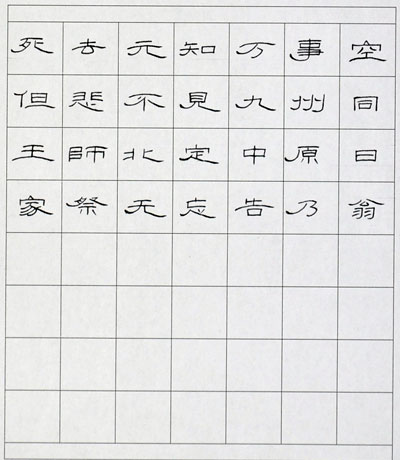 死去元知万事空
但悲不見九州同
王師北定中原日
家祭无忘告乃翁